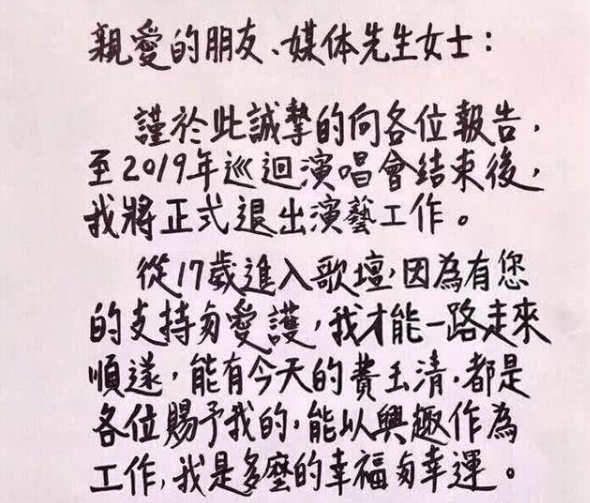 親愛的朋友、媒体先生女士：
謹於此誠摯的向各位報告，
至2019年巡迴演唱會結束後，
我將正式退出演藝工作。
從17歲進入歌壇，因為有您
的支持与愛護，我才能一路走來
順遂，能有今天的費玉清，都是
各位賜予我的，能以興趣作為
工作，我是多麼的幸福与幸運。